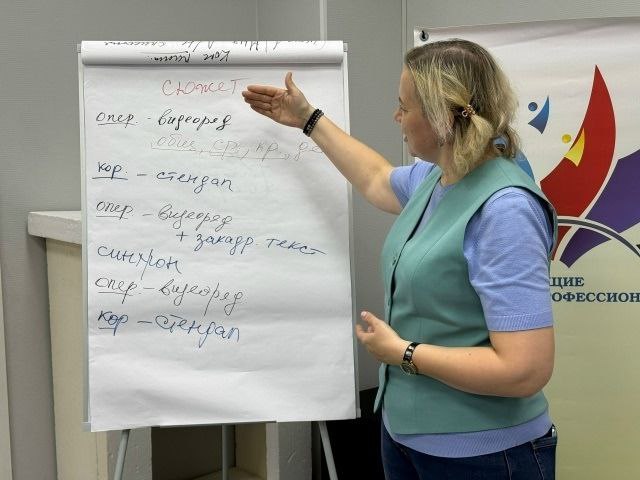 СЮЖЕТ
опер. - видеоряд
общ., ср., кр., де
кор. - стендап
опер. - видеоряд
+ закадр. текст
синхрон
опер. - видеоряд
кор - стендап
ЩИЕ
РОФЕССИОН